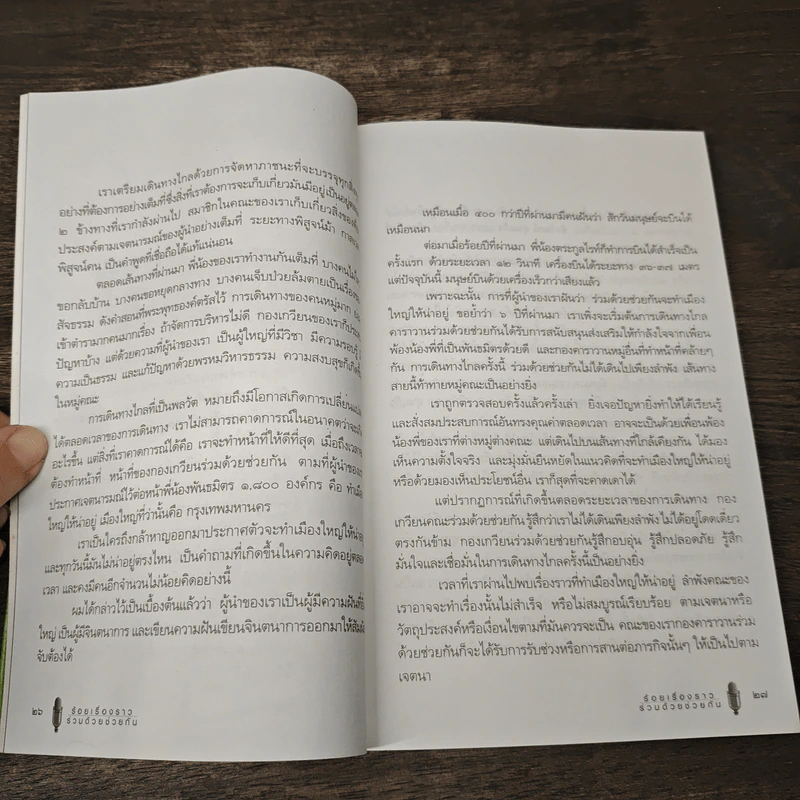 เราเตรียมเดินทางไกลด้วยการจัดหาภาชนะที่จะบรรจุทุกสิ่ง
อย่างที่ต้องการอย่างเต็มที่ซึ่งสิ่งที่เราต้องการจะเก็บเกี่ยวมันมีอยู่เป็นอยู่
๒ ข้างทางที่เรากำลังผ่านไป สมาชิกในคณะของเราเก็บเกี่ยวสิ่งของ
ประสงค์ตามเจตนารมณ์ของผู้นำอย่างเต็มที่ ระยะทางพิสูจน์ม้า กาล
พิสูจน์คน เป็นคำพูดที่เชื่อถือได้แท้แน่นอน
ตลอดเส้นทางที่ผ่านมา พี่น้องของเราทำงานกันเต็มที่ บางคนไม่ไหว
ขอกลับบ้าน บางคนขอหยุดกลางทาง บางคนเจ็บป่วยล้มตายเป็นเรื่อง
สัจธรรม ดังคำสอนที่พระพุทธองค์ตรัสไว้ การเดินทางของคนหมู่มาก
เข้าตำรามากคนมากเรื่อง ถ้าจัดการบริหารไม่ดี กองเกวียนของเราก็ประสบ
ปัญหาบ้าง แต่ด้วยความที่ผู้นำของเรา เป็นผู้ใหญ่ที่มีวิชา มีความรอบรู้
ความเป็นธรรม และแก้ปัญหาด้วยพรหมวิหารธรรม ความสงบสุขก็เกิดขึ้น
ในหมู่คณะ
การเดินทางไกลที่เป็นพลวัต หมายถึงมีโอกาสเกิดการเปลี่ยนแปลง
ได้ตลอดเวลาของการเดินทาง เราไม่สามารถคาดการณ์ในอนาคตว่าจะเกิด
อะไรขึ้น แต่สิ่งที่เราคาดการณ์ได้คือ เราจะทำหน้าที่ให้ดีที่สุด เมื่อถึงเวลา
ต้องทำหน้าที่ หน้าที่ของกองเกวียนร่วมด้วยช่วยกัน ตามที่ผู้นำของเรา
ประกาศเจตนารมณ์ไว้ต่อหน้าพี่น้องพันธมิตร ๑,๘๐๐ องค์กร คือ ทำเมือง
ใหญ่ให้น่าอยู่ เมืองใหญ่ที่ว่านั้นคือ กรุงเทพมหานคร
เราเป็นใครถึงกล้าหาญออกมาประกาศตัวจะทำเมืองใหญ่ให้น่าอยู่
และทุกวันนี้มันไม่น่าอยู่ตรงไหน เป็นคำถามที่เกิดขึ้นในความคิดอยู่ตลอด
เวลา และคงมีคนอีกจำนวนไม่น้อยคิดอย่างนี้
ผมได้กล่าวไว้เป็นเบื้องต้นแล้วว่า ผู้นำของเราเป็นผู้มีความฝันที่ยิ่ง
ใหญ่ เป็นผู้มีจินตนาการ และเขียนความฝันเขียนจินตนาการออกมาให้สัมผัส
จับต้องได้
๒๖ ร้อยเรื่องราว
ร่วมด้วยช่วยกัน
เหมือนเมื่อ ๔๐๐ กว่าปีที่ผ่านมามีคนฝันว่า สักวันมนุษย์จะบินได้
เหมือนนก
ต่อมาเมื่อร้อยปีที่ผ่านมา พี่น้องตระกูลไรท์ก็ทำการบินได้สำเร็จเป็น
ครั้งแรก ด้วยระยะเวลา ๑๒ วินาที เครื่องบินได้ระยะทาง ๓๖-๓๗ เมตร
แต่ปัจจุบันนี้ มนุษย์บินด้วยเครื่องเร็วกว่าเสียงแล้ว
เพราะฉะนั้น การที่ผู้นำของเราฝันว่า ร่วมด้วยช่วยกันจะทำเมือง
ใหญ่ให้น่าอยู่ ขอย้ำว่า ๖ ปีที่ผ่านมา เราเพิ่งจะเริ่มต้นการเดินทางไกล
คาราวานร่วมด้วยช่วยกันได้รับการสนับสนุนส่งเสริมให้กำลังใจจากเพื่อน
พ้องน้องพี่ที่เป็นพันธมิตรด้วยดี และกองคาราวานหมู่อื่นที่ทำหน้าที่คล้ายๆ
กัน การเดินทางไกลครั้งนี้ ร่วมด้วยช่วยกันไม่ได้เดินไปเพียงลำพัง เส้นทาง
สายนี้ท้าทายหมู่คณะเป็นอย่างยิ่ง
เราถูกตรวจสอบครั้งแล้วครั้งเล่า ยิ่งเจอปัญหายิ่งทำให้ได้เรียนรู้
และสั่งสมประสบการณ์อันทรงคุณค่าตลอดเวลา อาจจะเป็นด้วยเพื่อนพ้อง
น้องพี่ของเราที่ต่างหมู่ต่างคณะ แต่เดินไปบนเส้นทางที่ใกล้เคียงกัน ได้มอง
เห็นความตั้งใจจริง และมุ่งมั่นยืนหยัดในแนวคิดที่จะทำเมืองใหญ่ให้น่าอยู่
หรือด้วยมองเห็นประโยชน์อื่น เราก็สุดที่จะคาดเดาได้
แต่ปรากฏการณ์ที่เกิดขึ้นตลอดระยะเวลาของการเดินทาง กอง
เกวียนคณะร่วมด้วยช่วยกันรู้สึกว่าเราไม่ได้เดินเพียงลำพัง ไม่ได้อยู่โดดเดี่ยว
ตรงกันข้าม กองเกวียนร่วมด้วยช่วยกันรู้สึกอบอุ่น รู้สึกปลอดภัย รู้สึก
มั่นใจและเชื่อมั่นในการเดินทางไกลครั้งนี้เป็นอย่างยิ่ง
เวลาที่เราผ่านไปพบเรื่องราวที่ทำเมืองใหญ่ให้น่าอยู่ ลำพังคณะของ
เราอาจจะทำเรื่องนั้นไม่สำเร็จ หรือไม่สมบูรณ์เรียบร้อย ตามเจตนาหรือ
วัตถุประสงค์หรือเงื่อนไขตามที่มันควรจะเป็น คณะของเรากองคาราวานร่วม
ด้วยช่วยกันก็จะได้รับการรับช่วงหรือการสานต่อภารกิจนั้นๆ ให้เป็นไปตาม
เจตนา
ร้อยเรื่องราว ๒๗
ร่วมด้วยช่วยกัน